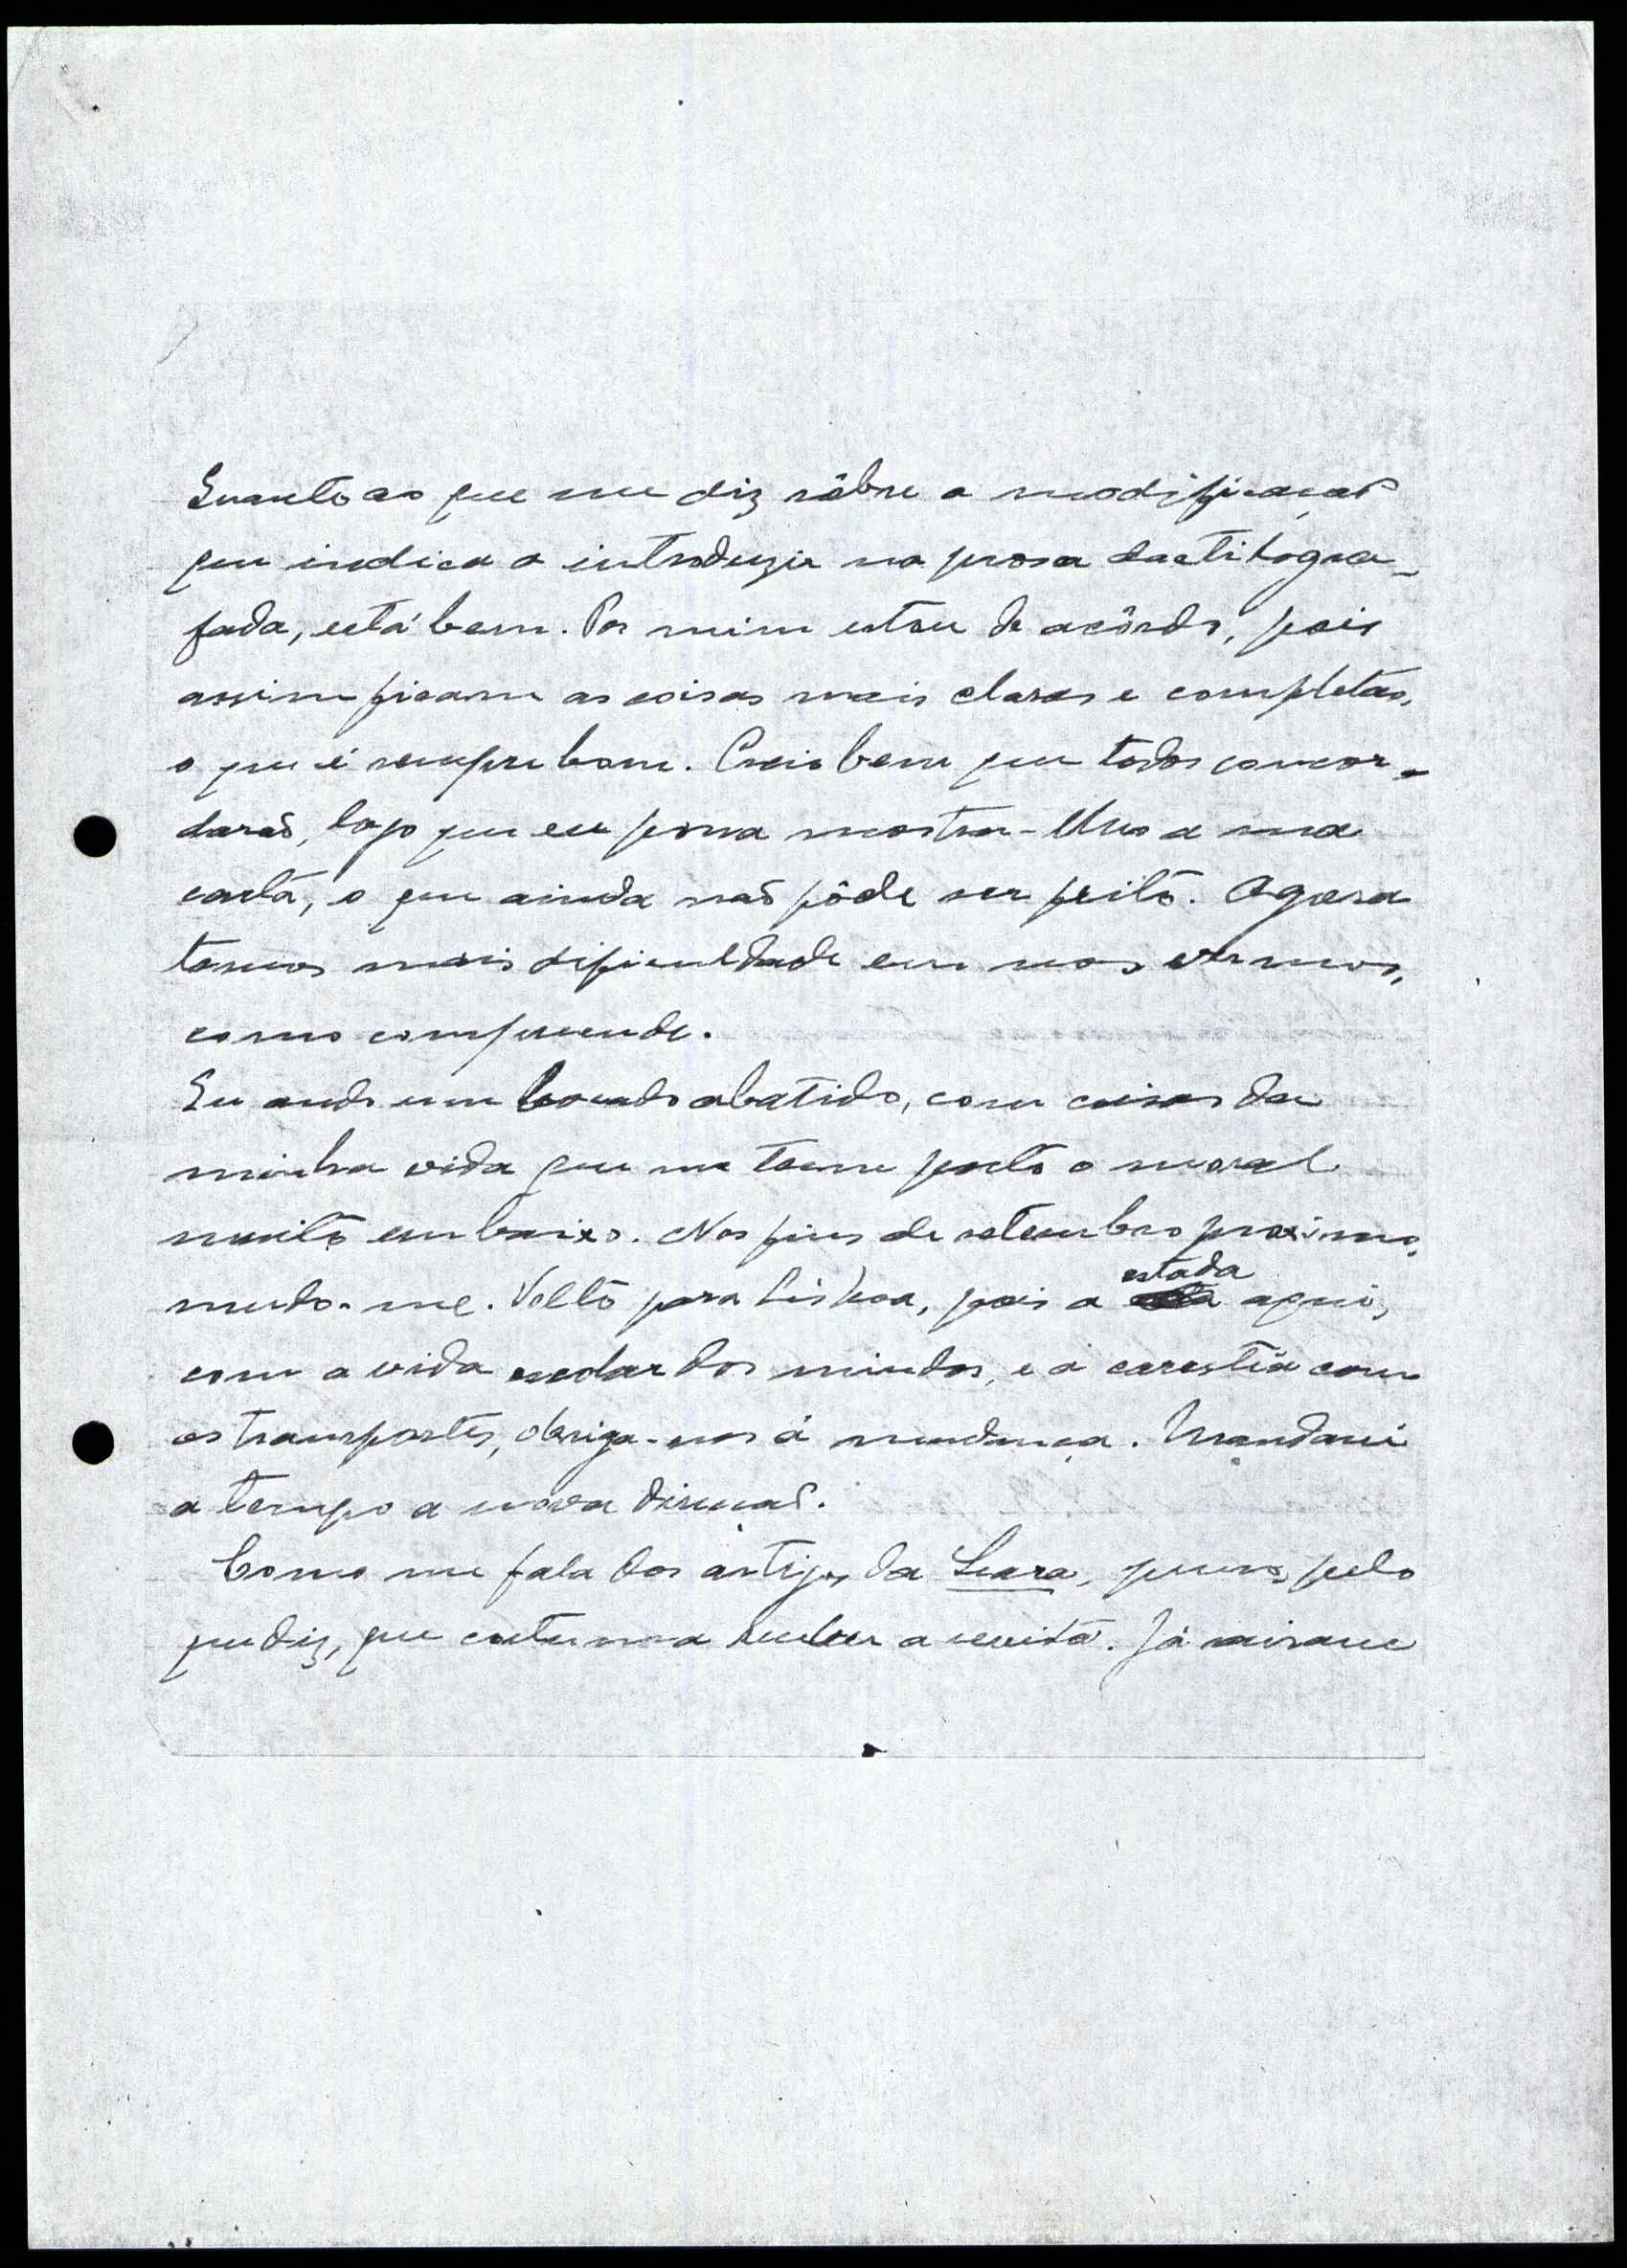 Quanto ao que me diz sôbre a modificação
que indica a introduzir na prosa dactilogra-
fada, está bem. Por mim estou de acôrdo, pois
assim ficam as coisas mais claras e completas,
o que é sempre bom. Creio bem que todos concor-
darão, logo que eu possa mostrar-lhes a sua
carta, o que ainda não pôde ser feito. Agora
temos mais dificuldade em nos vermos,
como compreende.
Eu ando um bocado abatido, com coisas da
minha vida que me teem posto o moral
muito em baixo. Nos fins de setembro proximo,
mudo-me. Volto para Lisboa, pois a estada aqui,
com a vida escolar dos miudos, e a carestia com
os transportes, obriga-nos á mudança. Mandarei
a tempo a nova direcção.
Como me fala dos artigos da Seara, penso, pelo
que diz, que continua a receber a revista. Já sairam